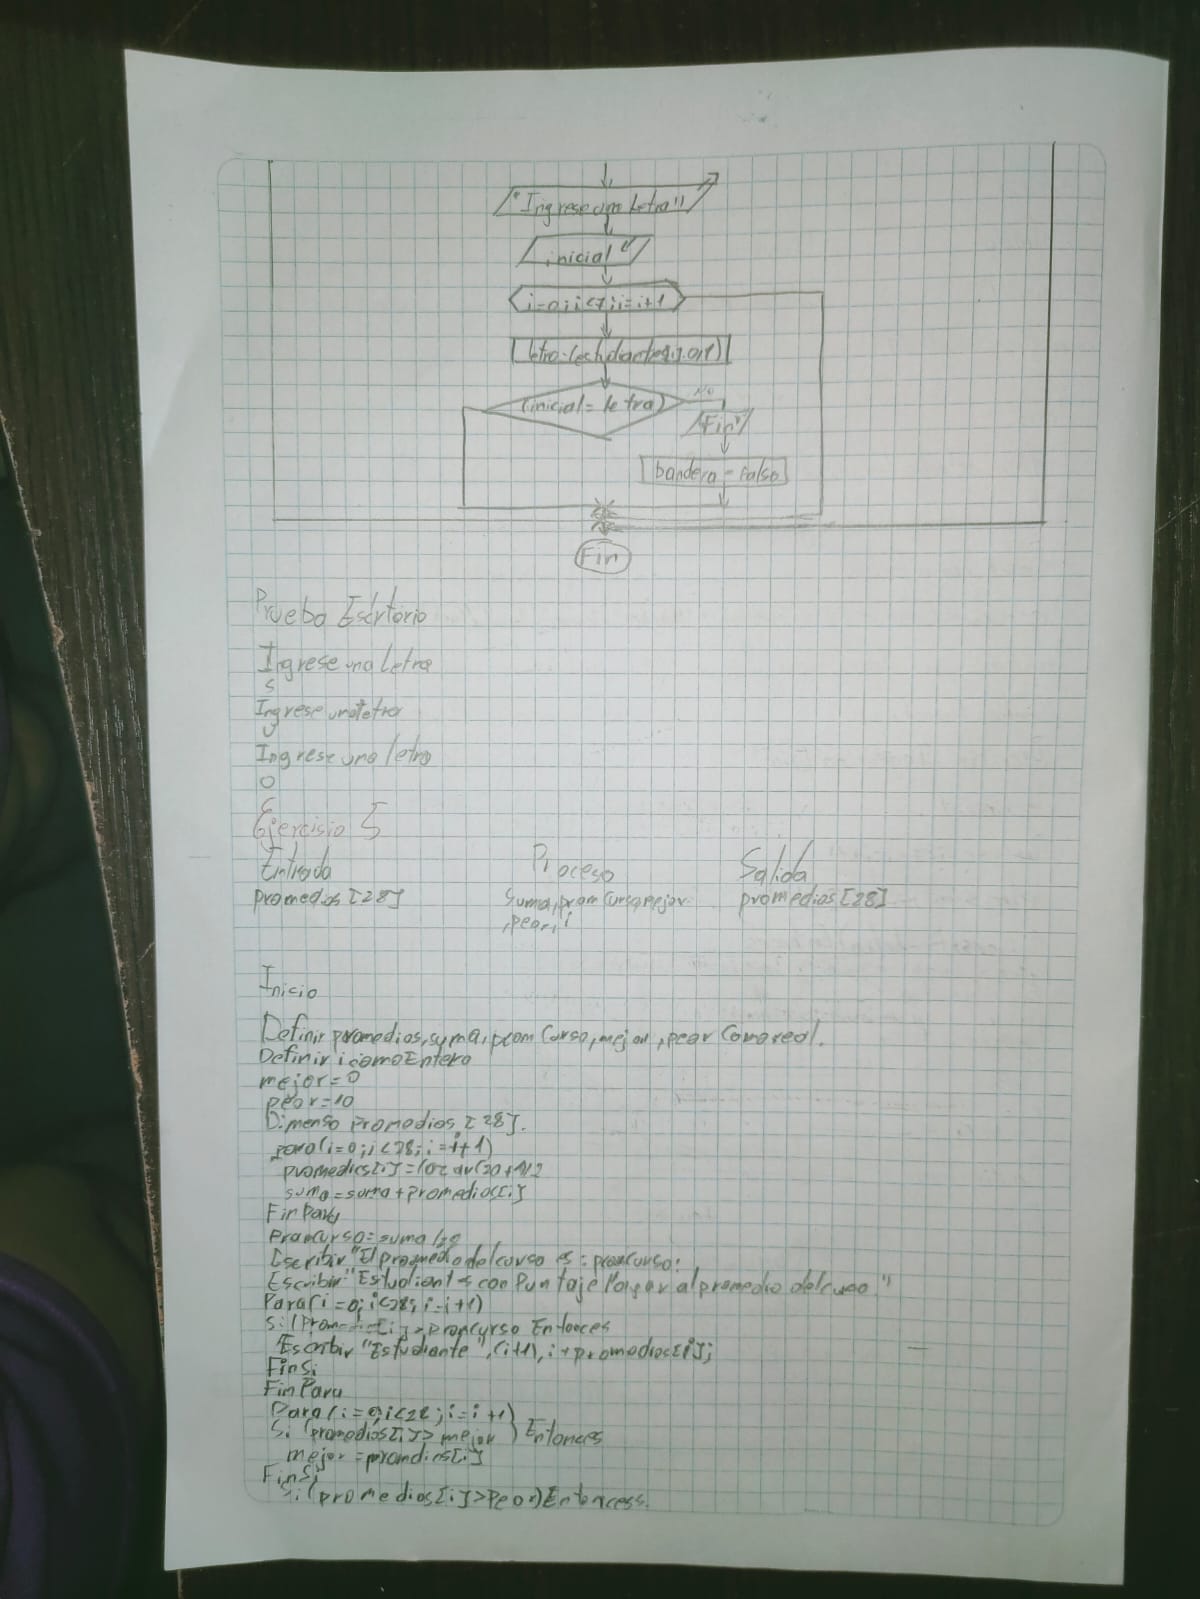 "Ingrese una Letra"
inicial
i=0;i<7;i=i+1
(inicial= letra)
No
"Fin"
bandera = Falso
Fin
Prueba Escrtorio
Ingrese una Letra
s
Ingrese una letra
Ingrese una letra
o
Ejercisio 5
Entrada Proceso Salida
promedios [28] Suma,prom Curso,mejor promedios [28]
,peor,i
Inicio
Definir promedios,suma,prom Curso,mejor,peor Como real.
Definir i como Entero
mejor=0
peor=10
Dimenso Promedios [28].
para(i=0;i<28;i=i+1)
promedios[i]=(azar(20+1)/2
suma=suma+promedios[i]
Fin Para
promcurso=suma/28
Escribir "El promedio del curso es: promcurso:
Escribir "Estudiantes con Puntaje Mayor al promedio del curso"
Para(i=0;i<28;i=i+1)
Si(Promedio[i]>promcurso Entonces
Escribir "Estudiante",(i+1),i+promedios[i];
FinSi
Fin Para
Para(i=0;i<28;i=i+1)
Si (promedios[i]>mejor) Entonces
mejor=promdios[i]
FinSi
Si(promedios[i]>Peor)Entoncess.